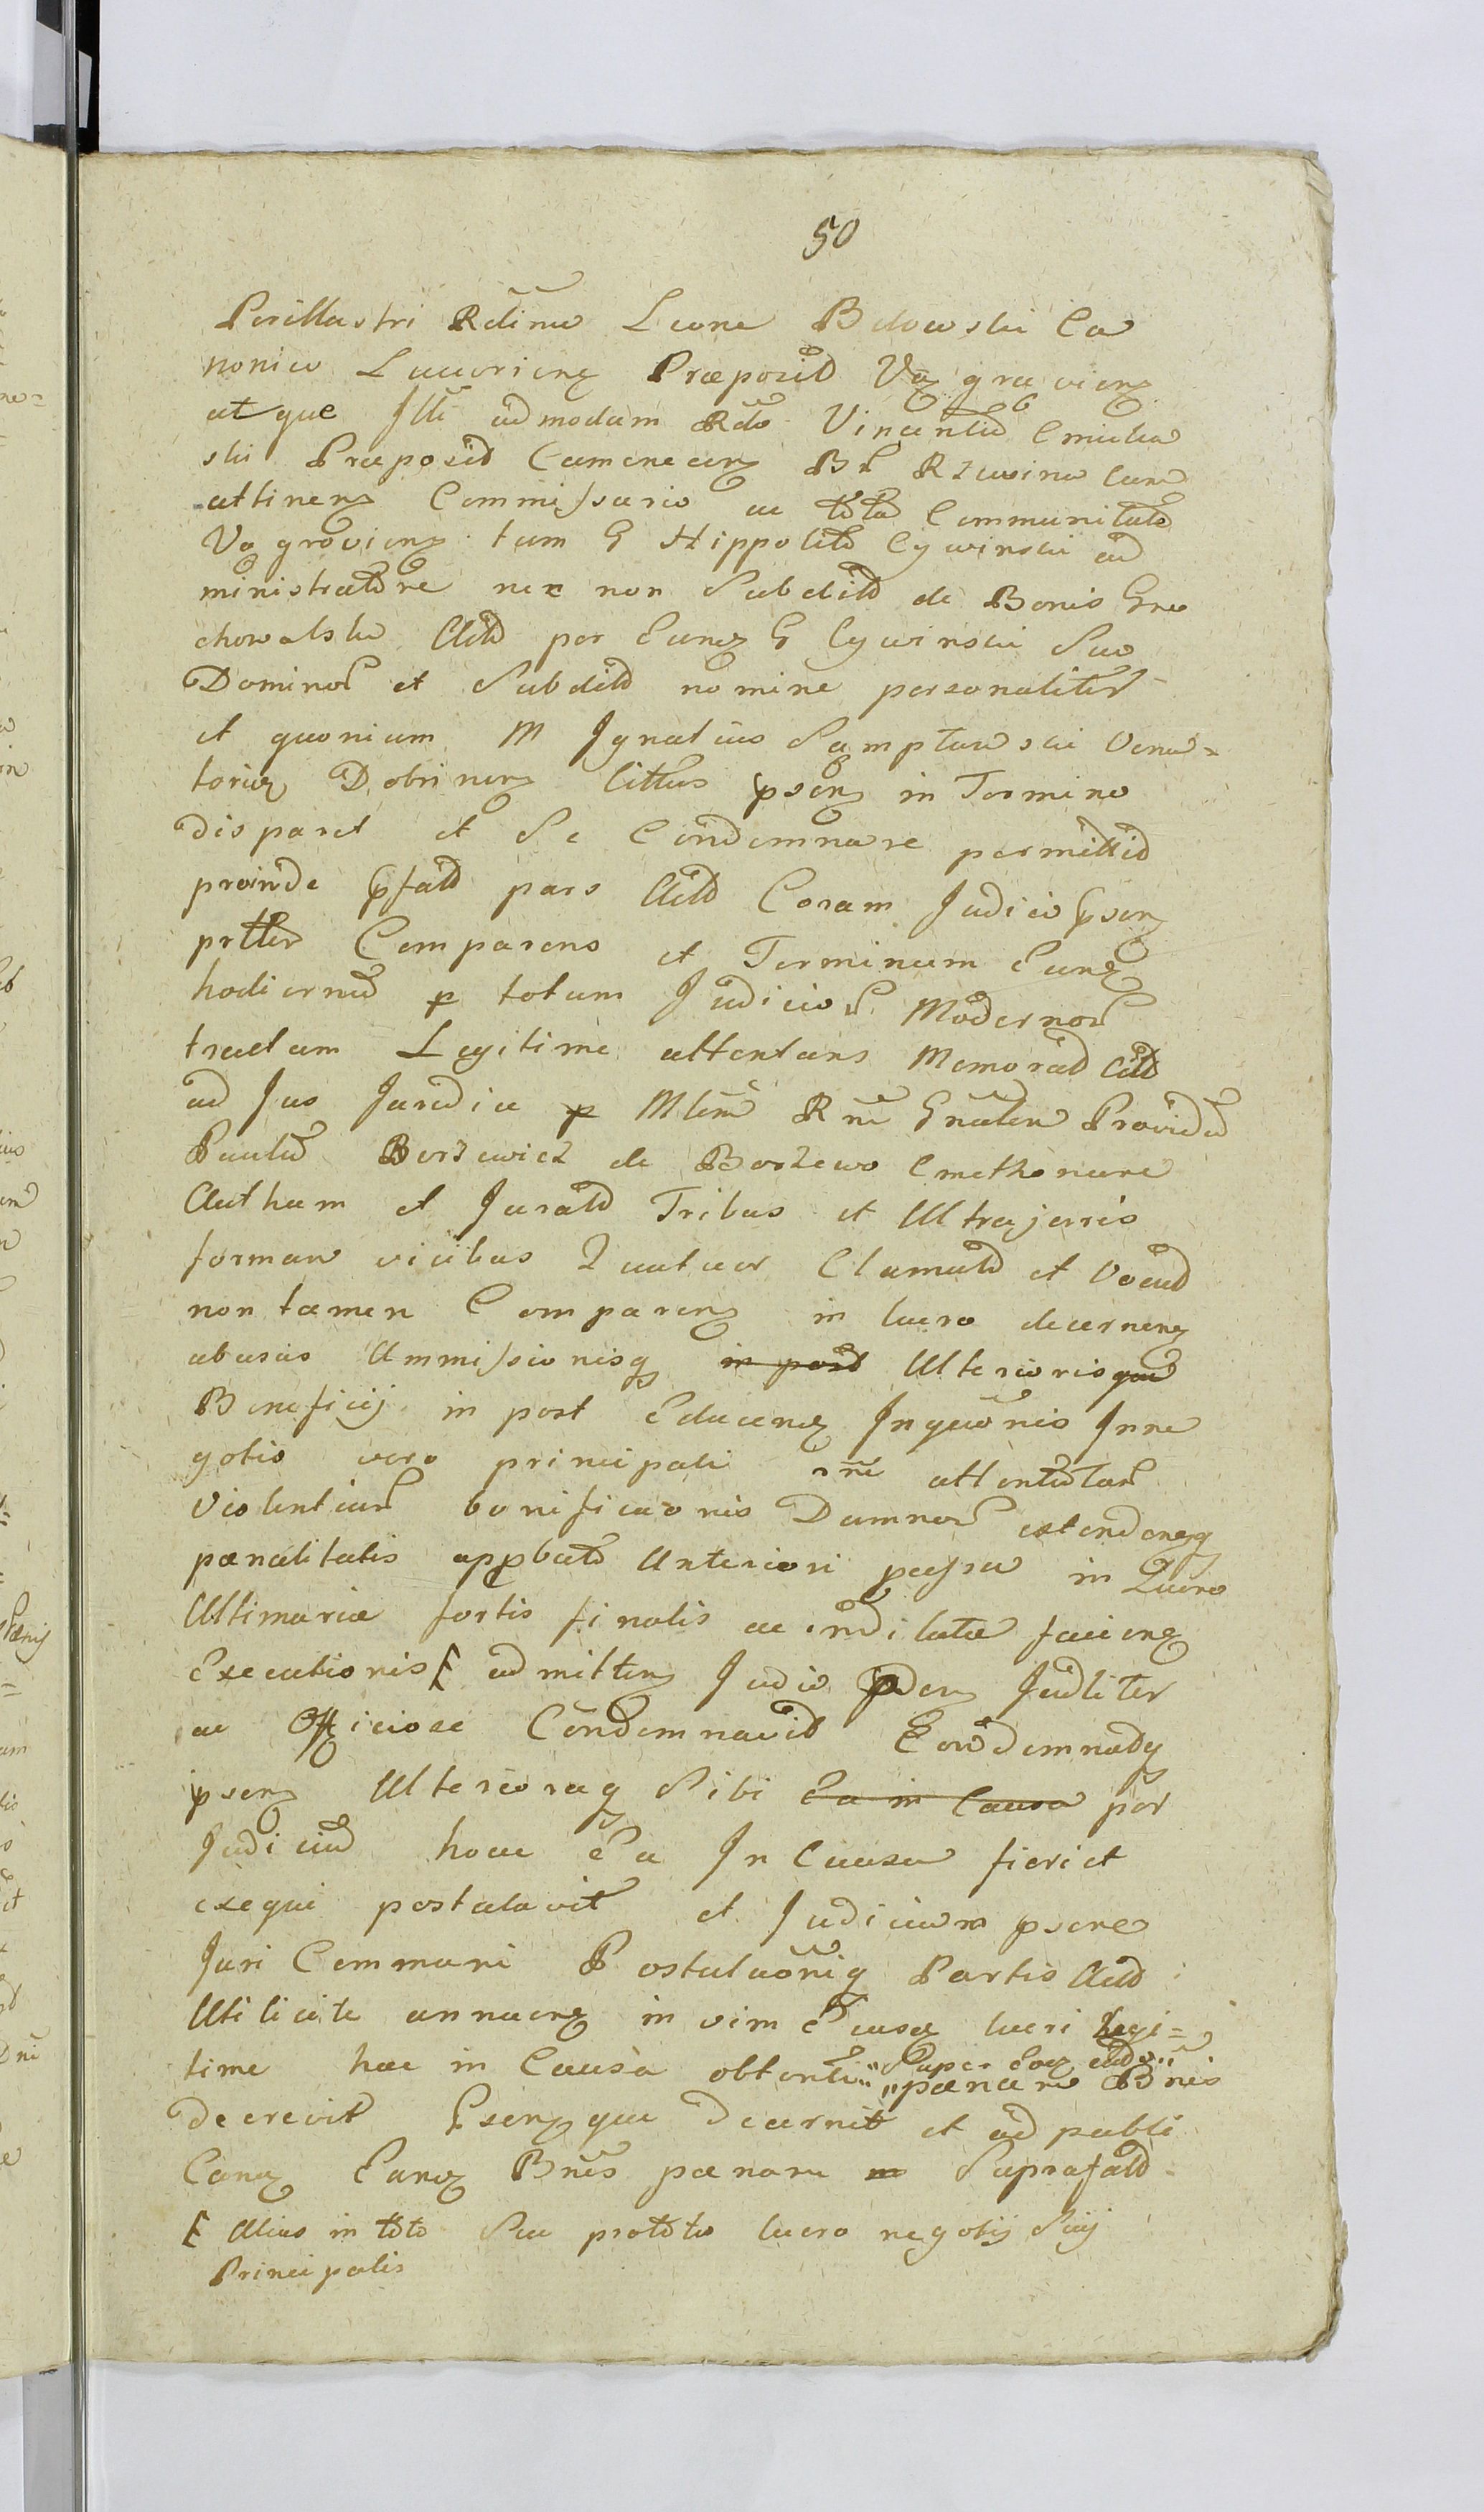 50
Perillustri Rdimo Leone Bełowski Ca
nonico Luceorien Præposid Vęgravien
atque Illi admodum Rdo Vincentio Cmiele
ski Præposid Camenecen Bł
attinen Commissario ac tota Communitate
Vęgrovien tum G Hippolito Cywinski ad
ministratore nec non Subditd de Bonis Gro
chowalsko Actd per Eund G Cywinski Suo
Dominor et Subditd nomine personaliter
et quoniam M Ignatius Sumptawski Vena=
torid Dobrinen Cittus psen in Termino
disparet et Se Condemnare permittid
proinde pfatd pars Actd Coram Judicio psen
prtter Comparens et Terminum Eund
hodiernu p totum Judicior Modernor
tractum Legitime attentans Memorad Citd
ad Jus Juredice p Mlem Rni Gnalem Providu
Paulu Borzewicz de Borzewo Cmethonem
Autham et Juratd Tribus et Ultrajuris
formam vicibus Quatuor Clamatd et Vocatd
non tamen Comparen in lucro decernen
abusus Ammissionisq in post Ulteriorisque
Beneficij in post Educen Inquonis Inne
gotio vero principali rne attentatar
Violentiar bonificaonis Damnor extendenq
pœnalitatis appbatd Anteriori in Lucro
Ultimariæ fortis finalis ac indilatæ facien
Executionis[ admitten Judio pden Judliter
ac Officiose Condemnavid Condemnatdq
psen Ulterioraq Sibi Ea in Causa per
Judiciu hocce Ea In Causa fieri et
exequi postulavit et Judicium psens
Juri Communi Postulaoniq Partis Actd
Utilicite annuen in vim Eiusd lucri legi=
time hac in Causa obtenti" Super
"pœnam Bnis
decrevit psenque decernit et ad publi
Cand Eand Bnis pœnam m Suprafatd
[ Alias in toto Seu prototo lucro negotij Suij
Principalis